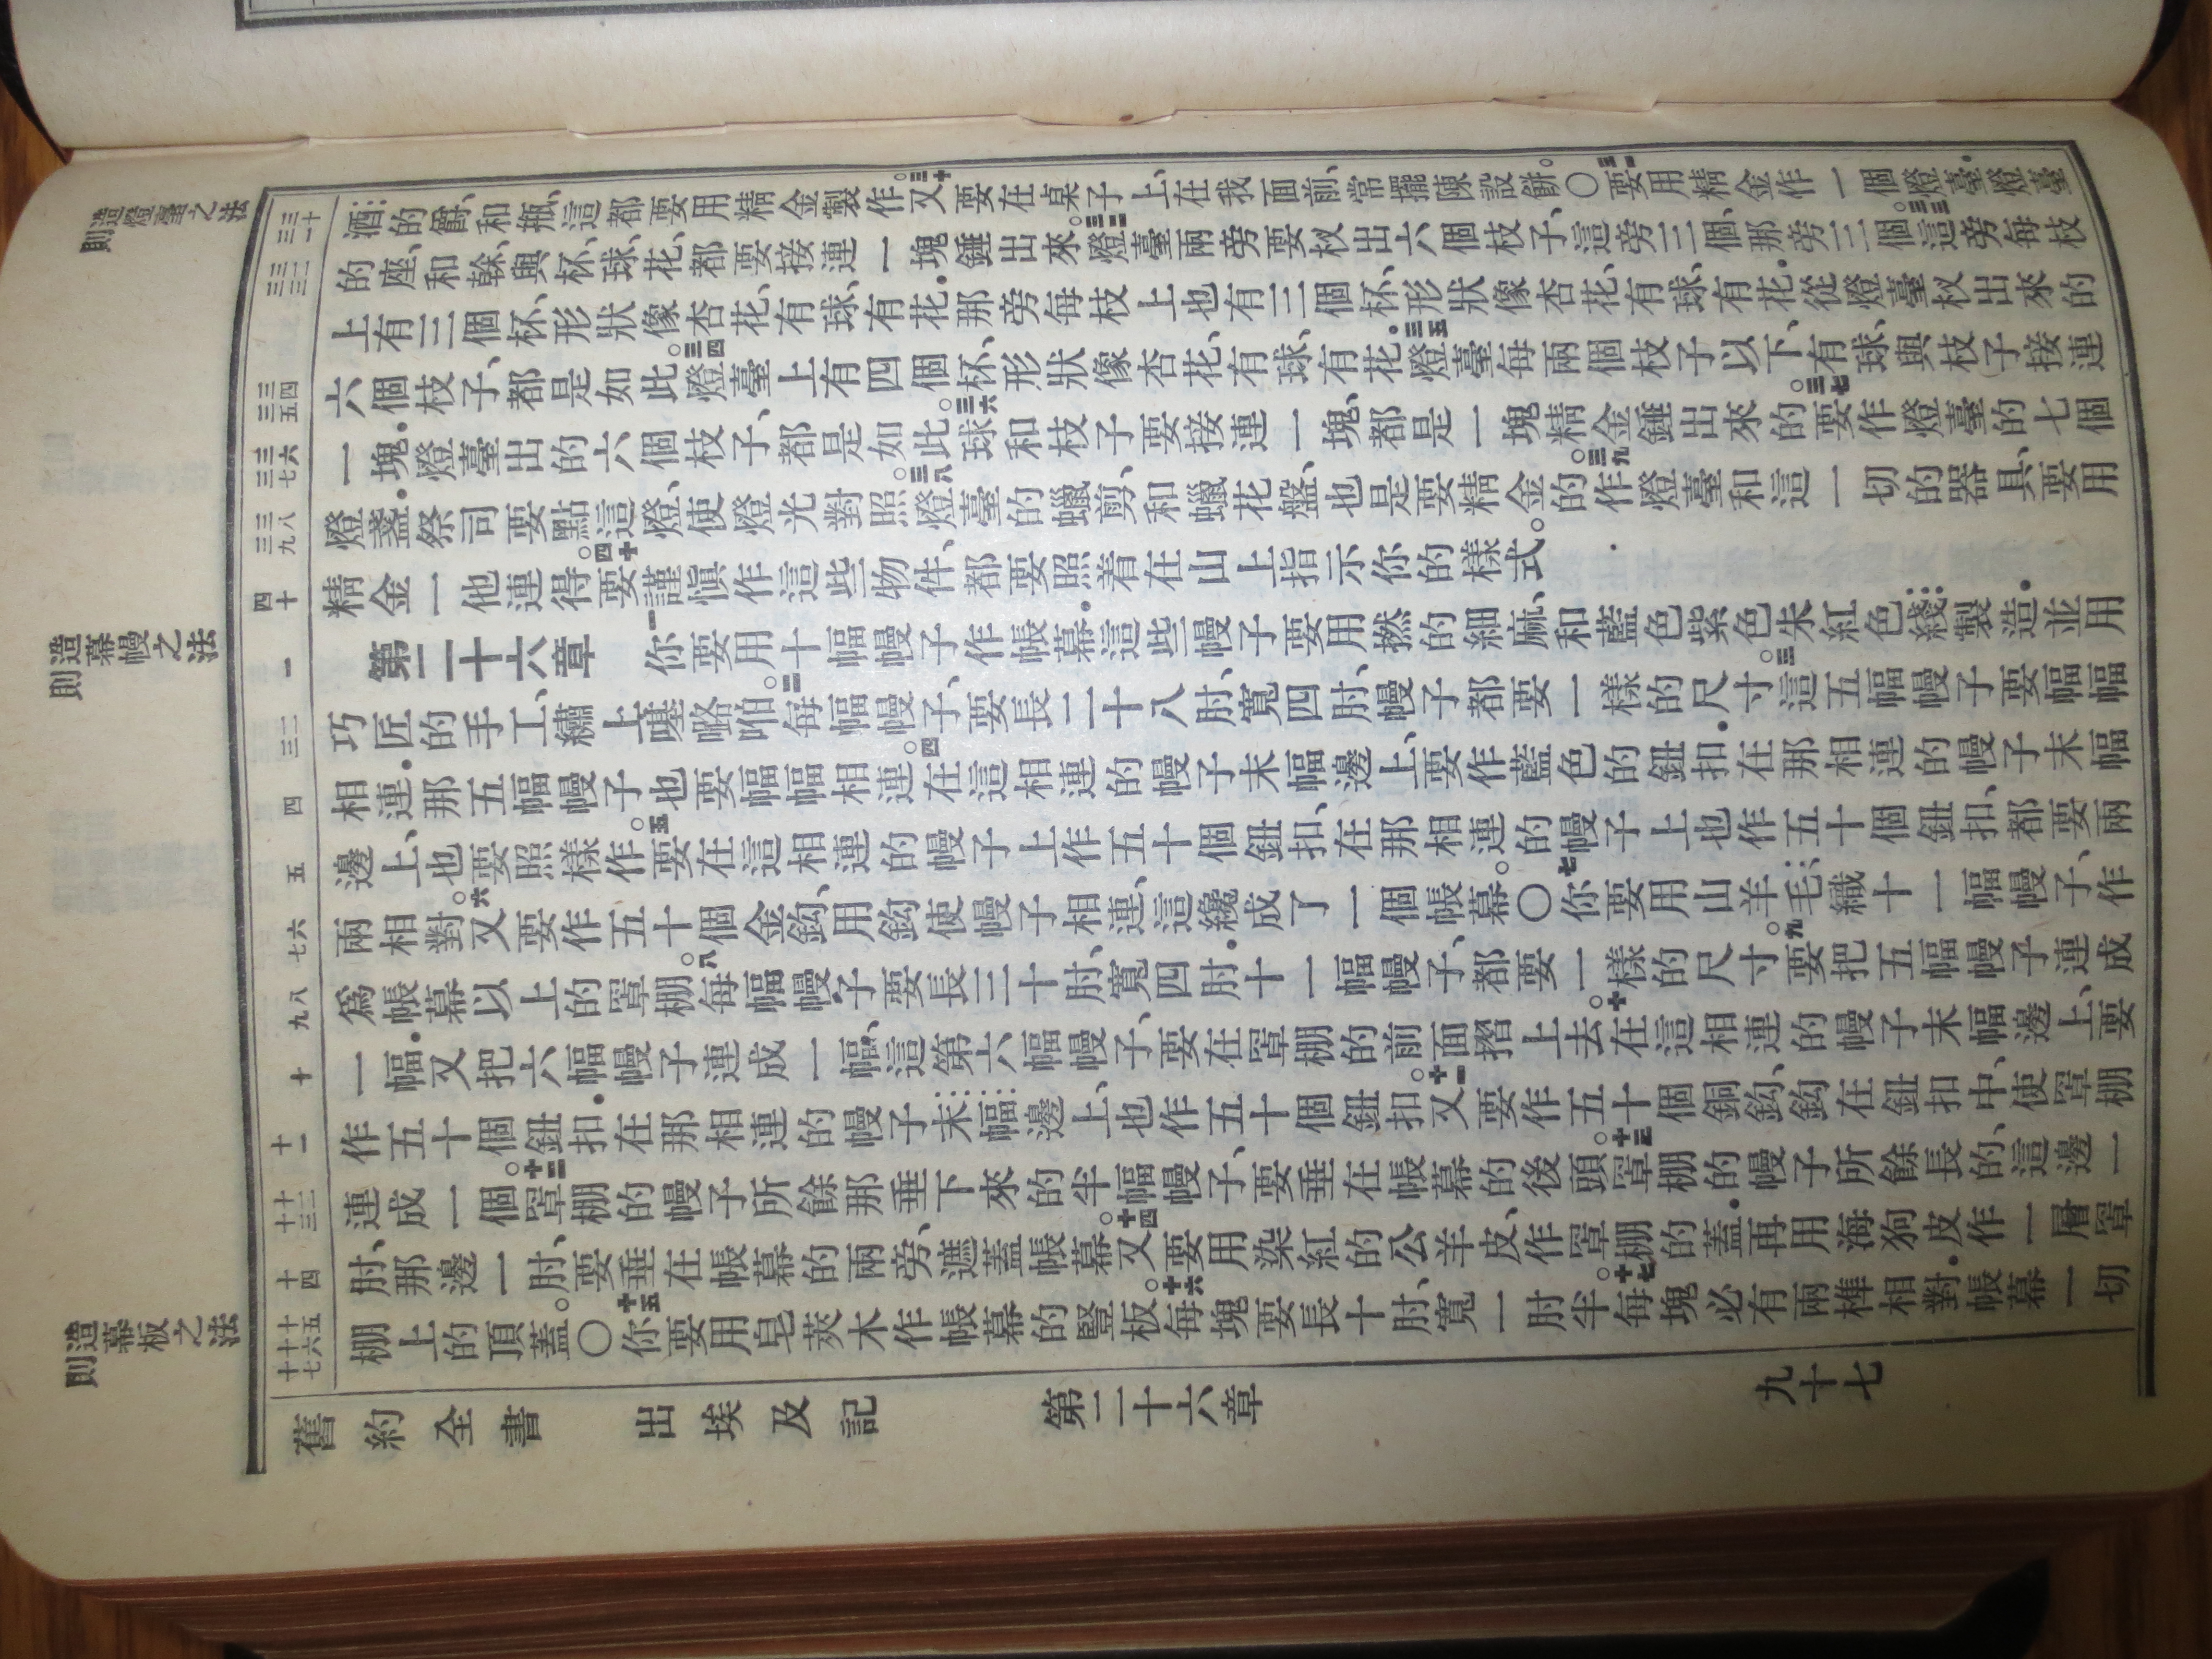 則造燈臺之法
則造幕幔之法
則造幕板之法
三十
三一
三二
三三
三四
三五
三六
三七
三八
三九
四十
一
二
三
四
五
六
七
八
九
十
十一
十二
十三
十四
十五
十六
十七
酒的爵、和瓶、這都要用精金製作。三十又要在桌子上、在我面前、常擺陳設餅。〇三一要用精金作一個燈臺.燈臺
的座、和榦、與杯、球、花、都要接連一塊錘出來。三二燈臺兩旁要杈出六個枝子、這旁三個、那旁三個。三三這旁每枝
上有三個杯、形狀像杏花、有球、有花.那旁每枝上也有三個杯、形狀像杏花、有球、有花.從燈臺杈出來的
六個枝子、都是如此。三四燈臺上有四個杯、形狀像杏花、有球、有花。三五燈臺每兩個枝子以下、有球、與枝子接連
一塊.燈臺出的六個枝子、都是如此。三六球和枝子要接連一塊、都是一塊精金錘出來的。三七要作燈臺的七個
燈盞.祭司要點這燈、使燈光對照。三八燈臺的蠟剪、和蠟花盤、也是要精金的。三九作燈臺和這一切的器具、要用
精金一他連得。四十要謹愼作這些物件、都要照着在山上指示你的樣式。
第二十六章 一你要用十幅幔子作帳幕.這些幔子要用撚的細麻、和藍色紫色朱紅色綫製造.並用
巧匠的手工、繡上𠼻嚧啪。二每幅幔子、要長二十八肘、寬四肘、幔子都要一樣的尺寸。三這五幅幔子要幅幅
相連.那五幅幔子也要幅幅相連。四在這相連的幔子末幅邊上、要作藍色的鈕扣.在那相連的幔子末幅
邊上、也要照樣作。五要在這相連的幔子上作五十個鈕扣、在那相連的幔子上也作五十個鈕扣、都要兩
兩相對。六又要作五十個金鈎、用鈎使幔子相連、這纔成了一個帳幕。〇七你要用山羊毛織十一幅幔子、作
爲帳幕以上的罩棚。八每幅幔子要長三十肘、寬四肘.十一幅幔子、都要一樣的尺寸。九要把五幅幔子連成
一幅.又把六幅幔子連成一幅、這第六幅幔子、要在罩棚的前面摺上去。十在這相連的幔子末幅邊上、要
作五十個鈕扣.在那相連的幔子末幅邊上、也作五十個鈕扣。十一又要作五十個銅鈎、鈎在鈕扣中、使罩棚
連成一個。十二罩棚的幔子所餘那垂下來的半幅幔子、要垂在帳幕的後頭。十三罩棚的幔子所餘長的、這邊一
肘、那邊一肘、要垂在帳幕的兩旁、遮蓋帳幕。十四又要用染紅的公羊皮、作罩棚的蓋.再用海狗皮作一層罩
棚上的頂蓋。〇十五你要用皂莢木作帳幕的豎板。十六每塊要長十肘、寬一肘半。十七每塊必有兩榫相對.帳幕一切
舊約全書 出埃及記 第二十六章 九十七